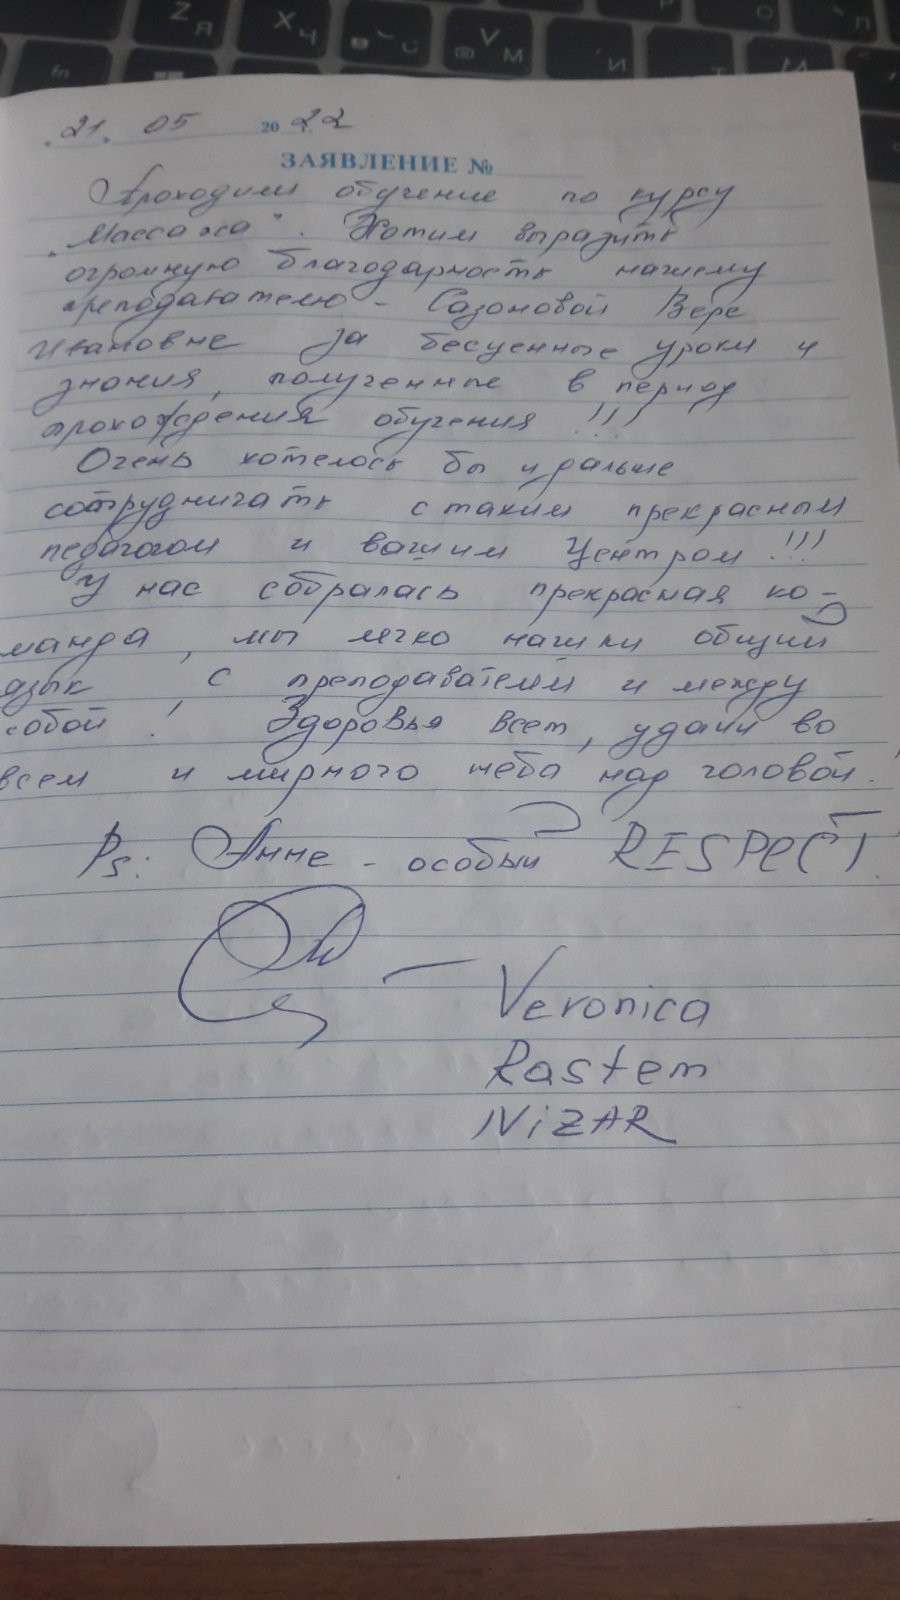 Z Я
X Ч
С
V М
И
fn
21. 05 2022 г.
ЗАЯВЛЕНИЕ №
Проходили обучение по курсу
"Массажа". Хотим выразить
огромную благодарность нашему
преподавателю - Сазоновой Вере
Ивановне за бесценные уроки и
знания, полученные в период
прохождения обучения !!!
Очень хотелось бы и дальше
сотрудничать с таким прекрасным
педагогом и вашим Центром !!!
У нас собралась прекрасная ко-
манда, мы легко нашли общий
язык с преподавателем и между
собой! Здоровья всем, удачи во
всем и мирного неба над головой.
Ps: Анне - особый RESPECT.
— Veronica
Rastem
NiZAR